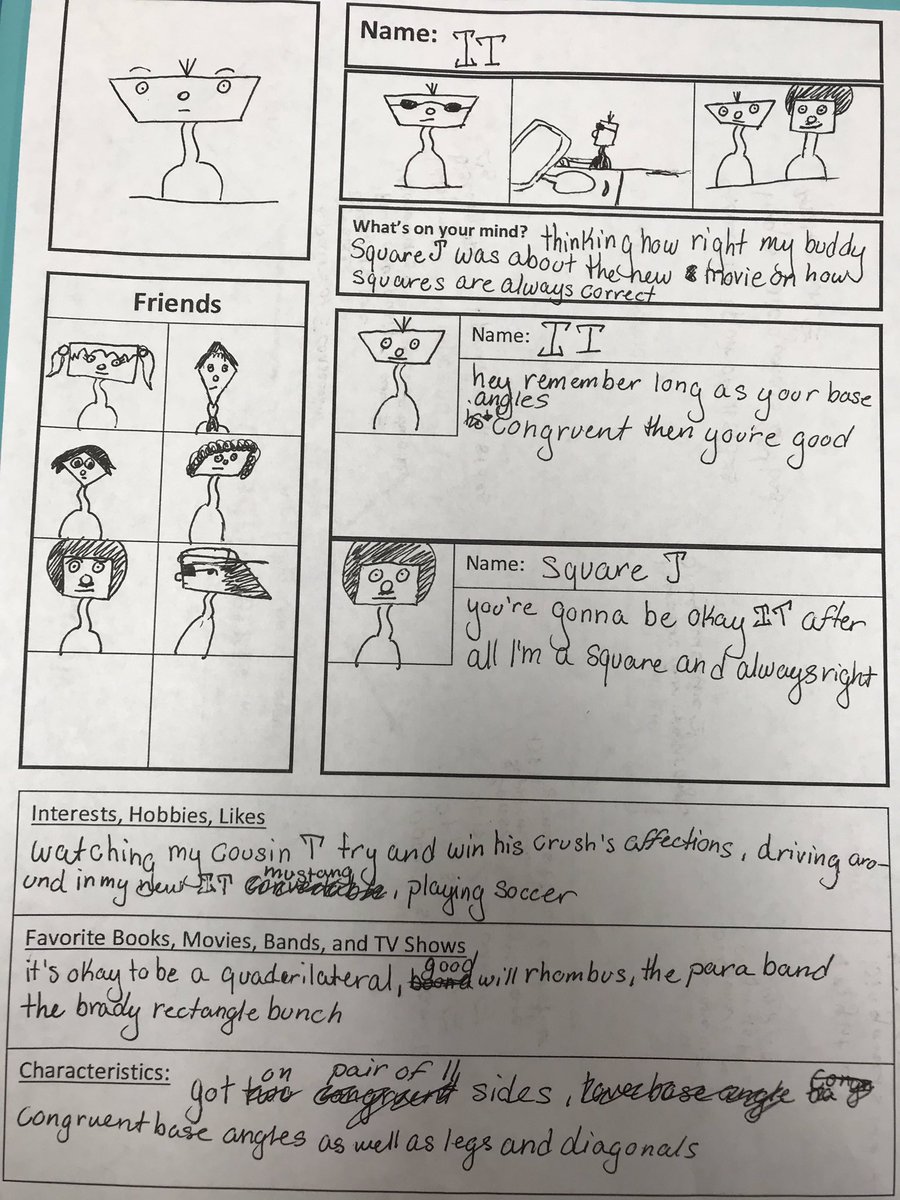 Name: IT
What's on your mind? thinking how right my buddy
Square J was about the new movie on how
squares are always correct
Friends
Name: IT
hey remember long as your base
angles
congruent then you're good
Name: Square J
you're gonna be okay IT after
all I'm a square and always right
Interests, Hobbies, Likes
watching my cousin T try and win his crush's affections, driving aro-
mustang
und in my new IT, playing soccer
Favorite Books, Movies, Bands, and TV Shows
good
it's okay to be a quaderilateral, will rhombus, the para band
the brady rectangle bunch
Characteristics:
on pair of ||
got two congruent sides, lower base angle
congruent base angles as well as legs and diagonals